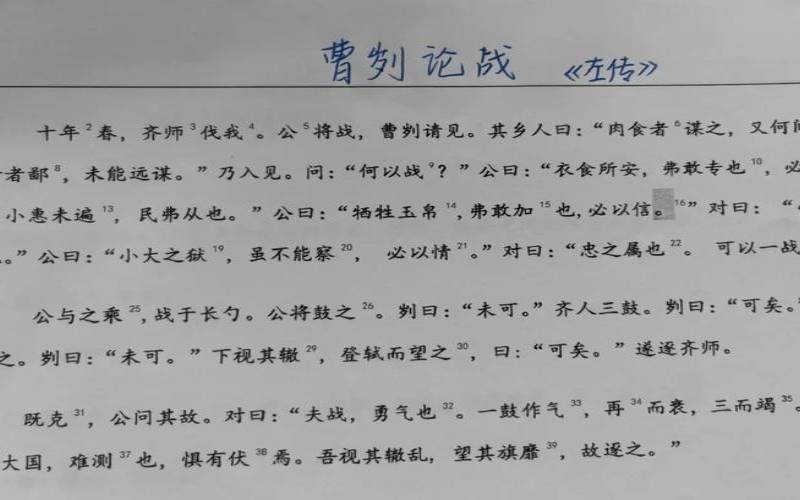 曹刿论战 《左传》
十年2春，齐师3伐我4。公5将战，曹刿请见。其乡人曰：“肉食者6谋之，又何间
者鄙8，未能远谋。”乃入见。问：“何以战9？”公曰：“衣食所安，弗敢专也10，必
小惠未遍13，民弗从也。”公曰：“牺牲玉帛14,弗敢加15也,必以信。16”对曰：“
。”公曰：“小大之狱19，虽不能察20，必以情21。”对曰：“忠之属也22。可以一战
公与之乘25,战于长勺。公将鼓之26。刿曰：“未可。”齐人三鼓。刿曰：“可矣。”
之。刿曰：“未可。”下视其辙29，登轼而望之30，曰：“可矣。”遂逐齐师。
既克31，公问其故。对曰：“夫战，勇气也32。一鼓作气33，再34而衰，三而竭35。
大国，难测37也，惧有伏38焉。吾视其辙乱，望其旗靡39，故逐之。”